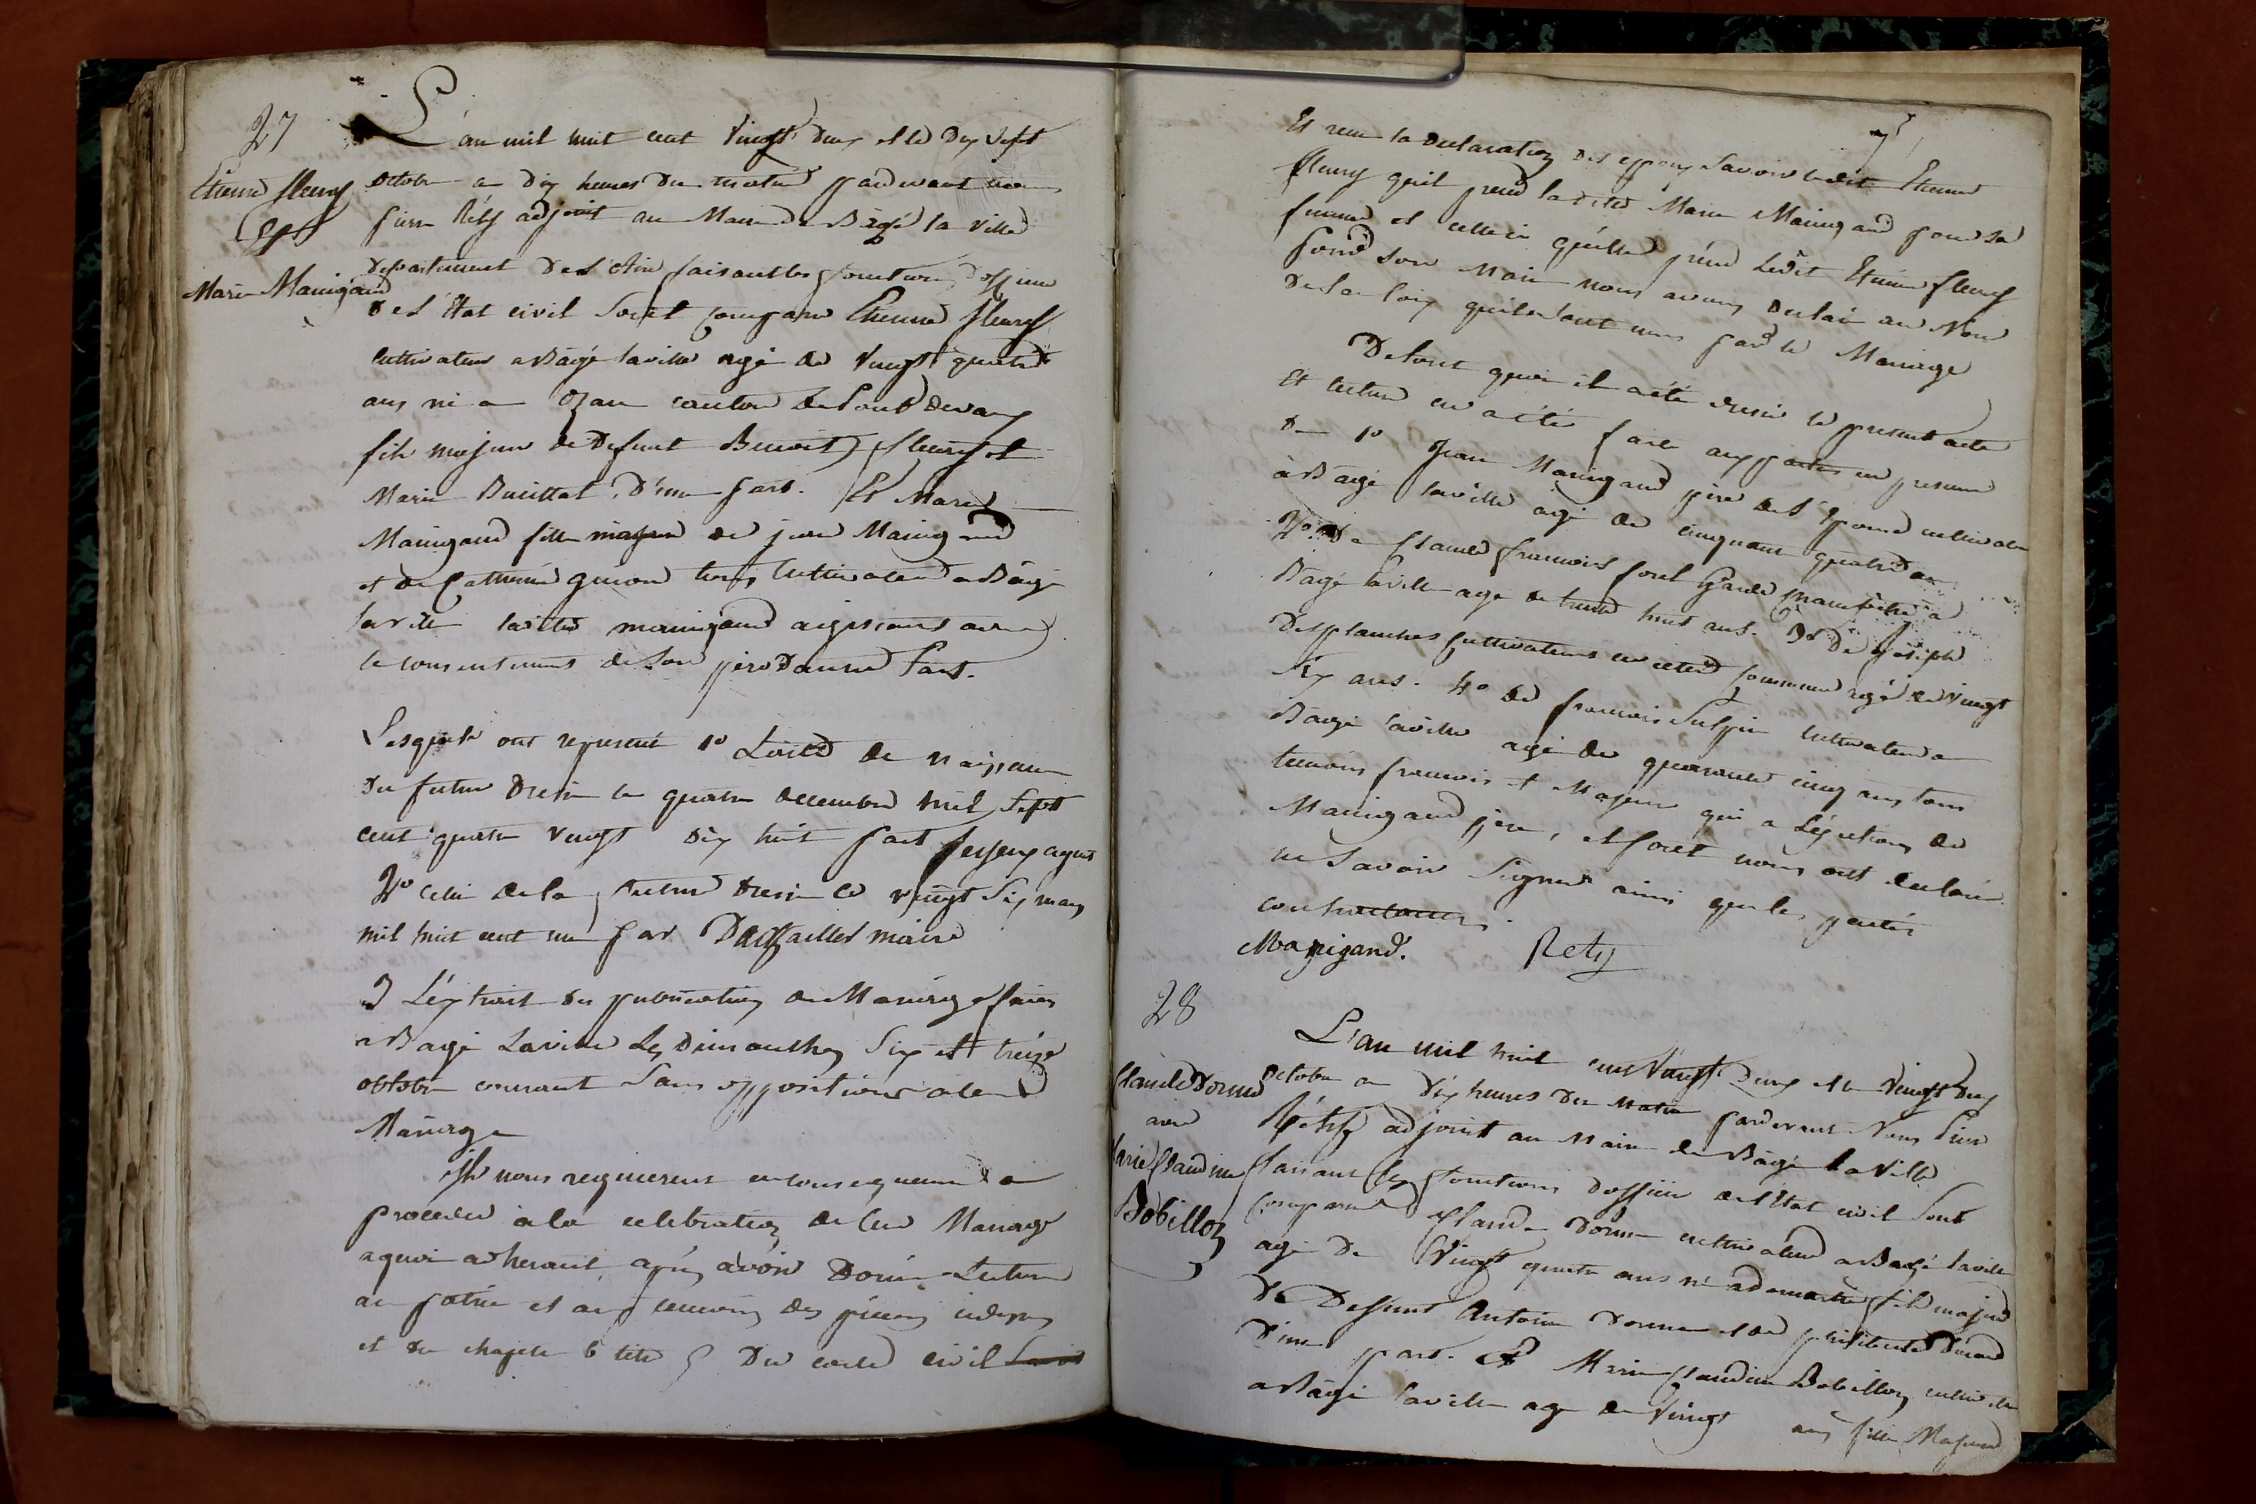 27
Etienne fleury
Epx
Marie Manigand
L'an mil huit cent vingt deux et le dix sept
octobre a dix heures du matin pardevant nous
pierre Rety adjoint au Maire de Bâgé la ville
departement de l'Ain faisant les fonctions d'officier
de l'Etat civil sont comparu Etienne fleury
cultivateur a Bâgé laville agé de vingt quatre
ans né a Ozan canton de Pont devaux
fils majeur de defunt Benoit fleury et
Marie d'une part. Et Marie
Manigand fille majeure de jean Manigand
et de Catherine guion tous cultivateurs a Bâgé
laville ladite manigand agissant avec
le consentement de son père d'autre Part.
Lesquels ont representé 1o L'acte de naissance
du futur dressé le quatre decembre mil sept
cent quatre vingt dix huit par
2o celui de la future dressé le vingt six mars
mil huit cent un par maire
3 L'extrait des publications de Mariage faites
a Bagé Laville Les Dimanches Six et treize
octobre courant sans opposition a leur
Mariage
Ils nous requierent en consequence de
proceder à la celebration de leur Mariage
a quoi adherant après avoir Donné Lecture
au parties et aux temoins des pieces
et du chapitre 6 titre 5 du code civil
Et recu la declaration des epoux savoir ledit Etienne
fleury qu'il prend ladite Marie Manigand pour sa
femme et celleci qu'elle prend Ledit Etienne fleury
pour son Mari nous avons declaré au Nom
de la loi qu'ils sont unis par le Mariage
De tout quoi il a été dressé le present acte
Et lecture en a été faite aux parties en presence
de 1o Jean Manigand père de l'epouse cultivateur
à Bâgé laville agé de cinquante quatre ans
2o de Claude francois foret Garde champêtre a
Bâgé laville age de trente huit ans. 3o De Joseph
Desplanches Cultivateur en cette commune agé de vingt
six ans. 4o de francois Sulpice cultivateur a
Bâgé laville agé de quarante cinq ans tous
temoins francois et Majeurs qui a L'exeption de
Manigand père, et foret nous ont declaré
ne savoir Signer ainsi que les parties
contractantes.
Manigand. Rety
28
Claude Dorme
avec
Marie Claudine
Bobillon
L'an mil huit cent vingt Deux et le vingt deux
octobre a dix heures du matin pardevant Nous Pierre
Rety adjoint au Maire de Bâgé la Ville
faisant les fonctions d'officier de l'Etat civil sont
comparu Claude Dorme cultivateur a Bâgé laville
agé de vingt quatre ans né fils majeur
de Deffunt Antoine Dorme et de
d'une part. Et Marie Claudine Bobillon cultivatrice
a Bâgé laville age de vingt ans fille Majeure